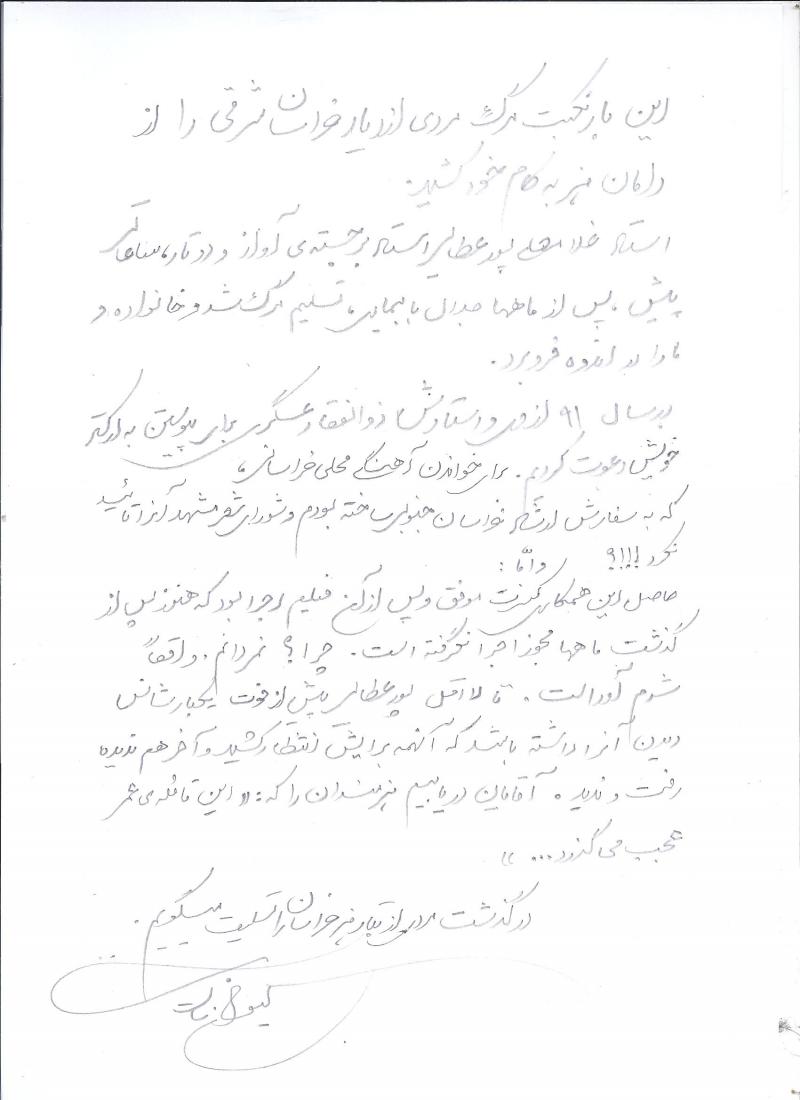 این بار نکبت مرگ مردی از دیار خراسان شرقی را از
دامان هنر به کام خود کشید.
استاد غلامعلی پورعطایی استاد برجسته‌ی آواز و دوتار، ساعاتی
پیش، پس از ماهها جدال با بیماری، تسلیم مرگ شد و خانواده و
ما را در اندوه فرو برد.
در سال ۹۱ از وی و استاد ذوالفقار عسگری برای پیوستن به ارکستر
خویش دعوت کردیم. برای خواندن آهنگی محلی خراسانی،
که به سفارش ارشاد خراسان جنوبی ساخته بودم و شورای شعر مشهد آنرا تائید
نکرد!!!!؟ و امّا:
حاصل این همکاری کنسرت موفق و پس از آن فیلم اجرا بود که هنوز پس از
گذشت ماهها مجوز اجرا نگرفته است. چرا؟ نمی‌دانم. واقعاً
شرم آور است. تا لااقل پورعطایی پیش از فوت یکبار شانس
دیدن آنرا داشته باشد که آنهمه برایش انتظار کشید و آخر هم ندیده
رفت و ندید. آقایان دریابیم هنرمندان را که: «این قافله‌ی عمر
عجب می گذرد...»
درگذشت مردی از تبار هنر خراسان را تسلیت میگویم.
کیوان